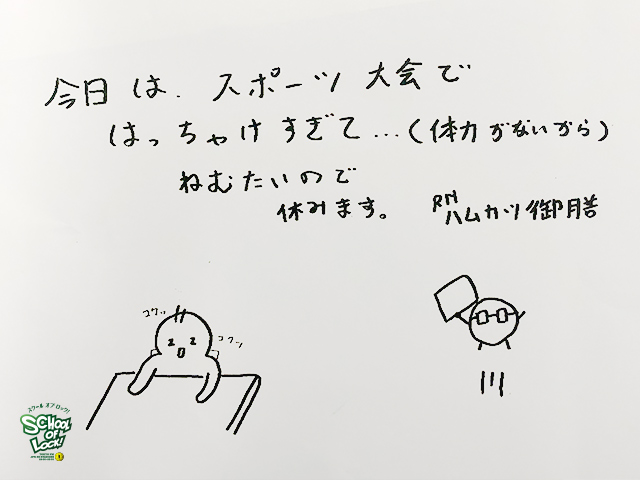 今日は、スポーツ大会で
はっちゃけすぎて…(体力がないから)
ねむたいので
休みます。 RN ハムカツ御膳
コクッ
コクッ
スクール オブ ロック!
SCHOOL
OF
LOCK!